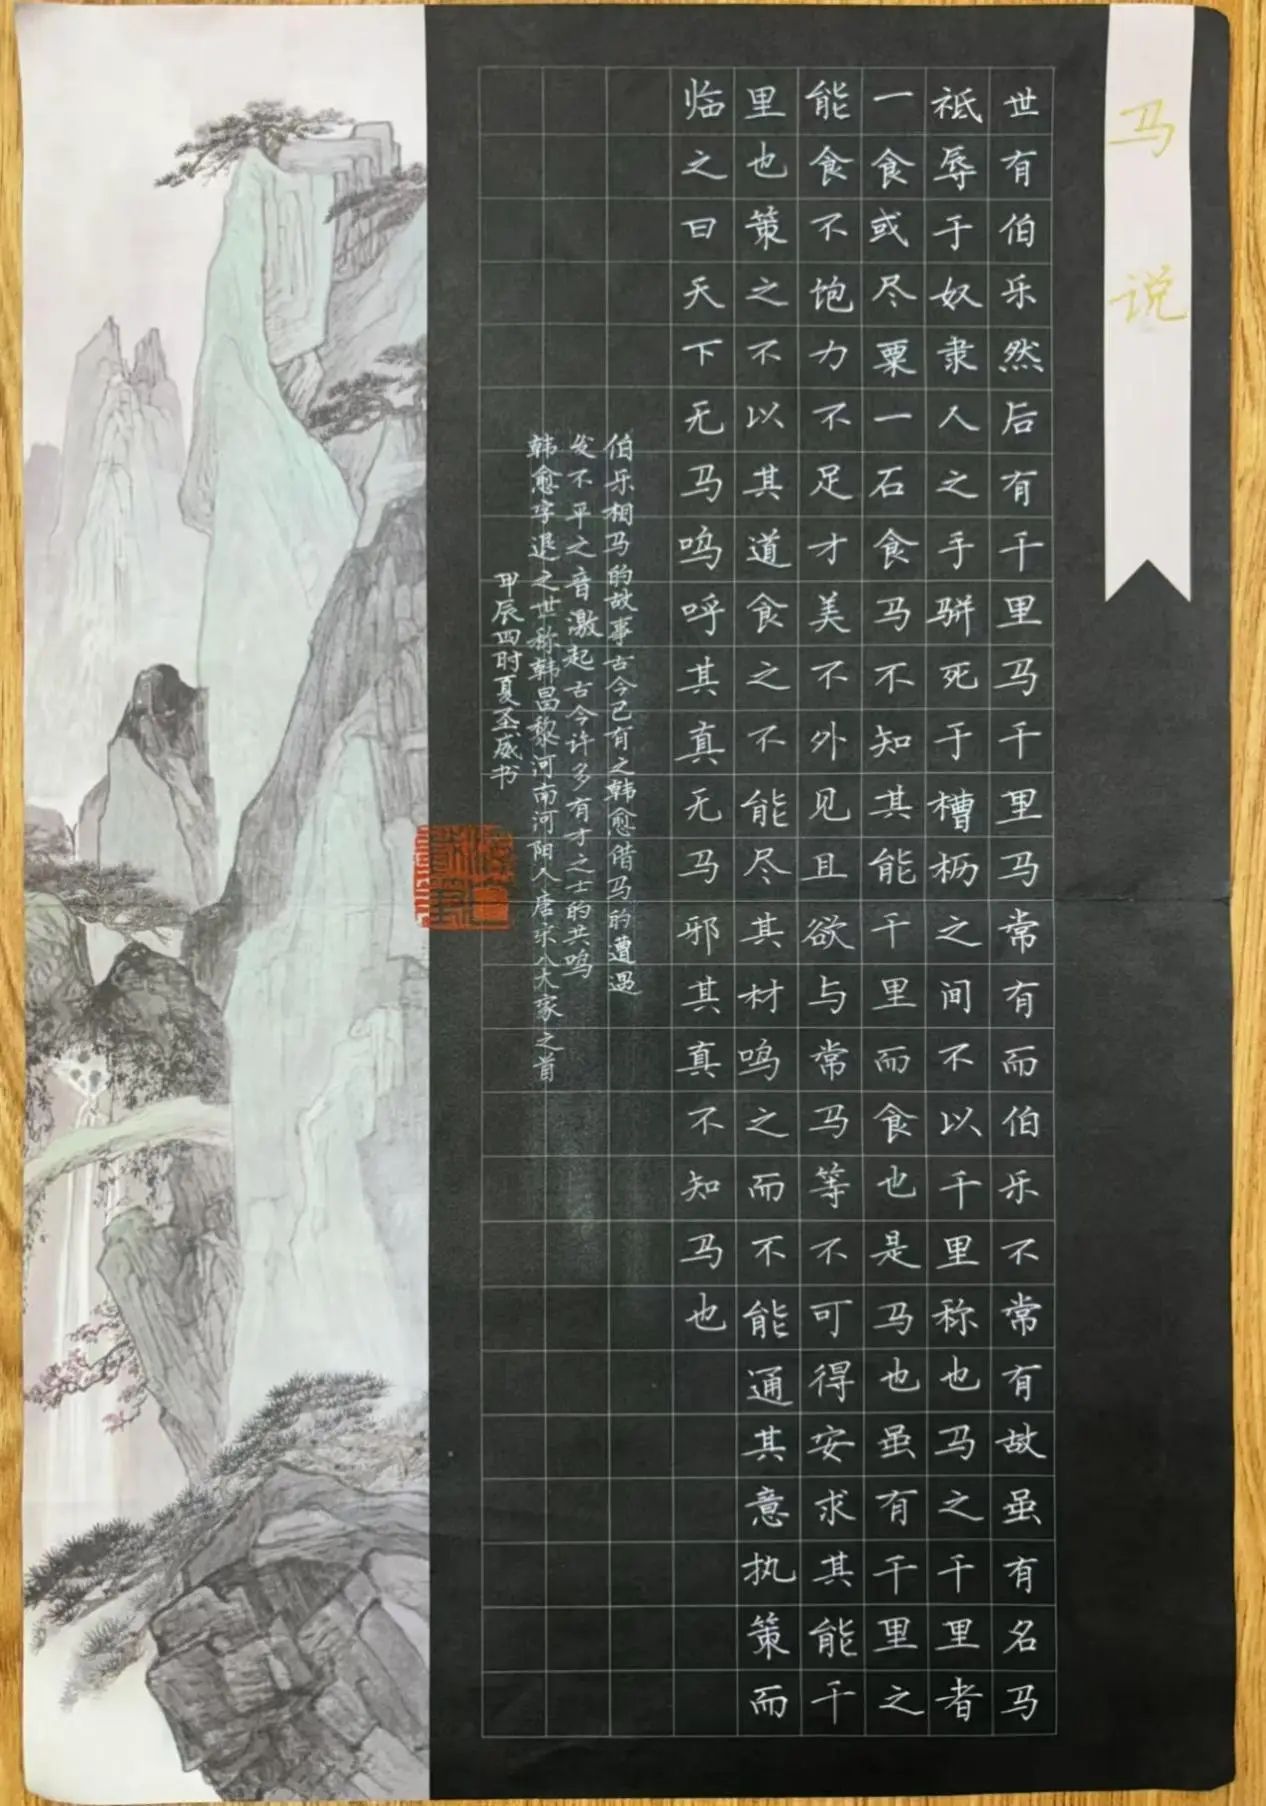 马说
世有伯乐然后有千里马千里马常有而伯乐不常有故虽有名马
祗辱于奴隶人之手骈死于槽枥之间不以千里称也马之千里者
一食或尽粟一石食马不知其能千里而食也是马也虽有千里之
能食不饱力不足才美不外见且欲与常马等不可得安求其能千
里也策之不以其道食之不能尽其材鸣之而不能通其意执策而
临之曰天下无马呜呼其真无马邪其真不知马也
伯乐相马的故事古今已有之韩愈借马的遭遇
发不平之音激起古今许多有才之士的共鸣
韩愈字退之世称韩昌黎河南河阳人唐宋八大家之首
甲辰四时夏至威书